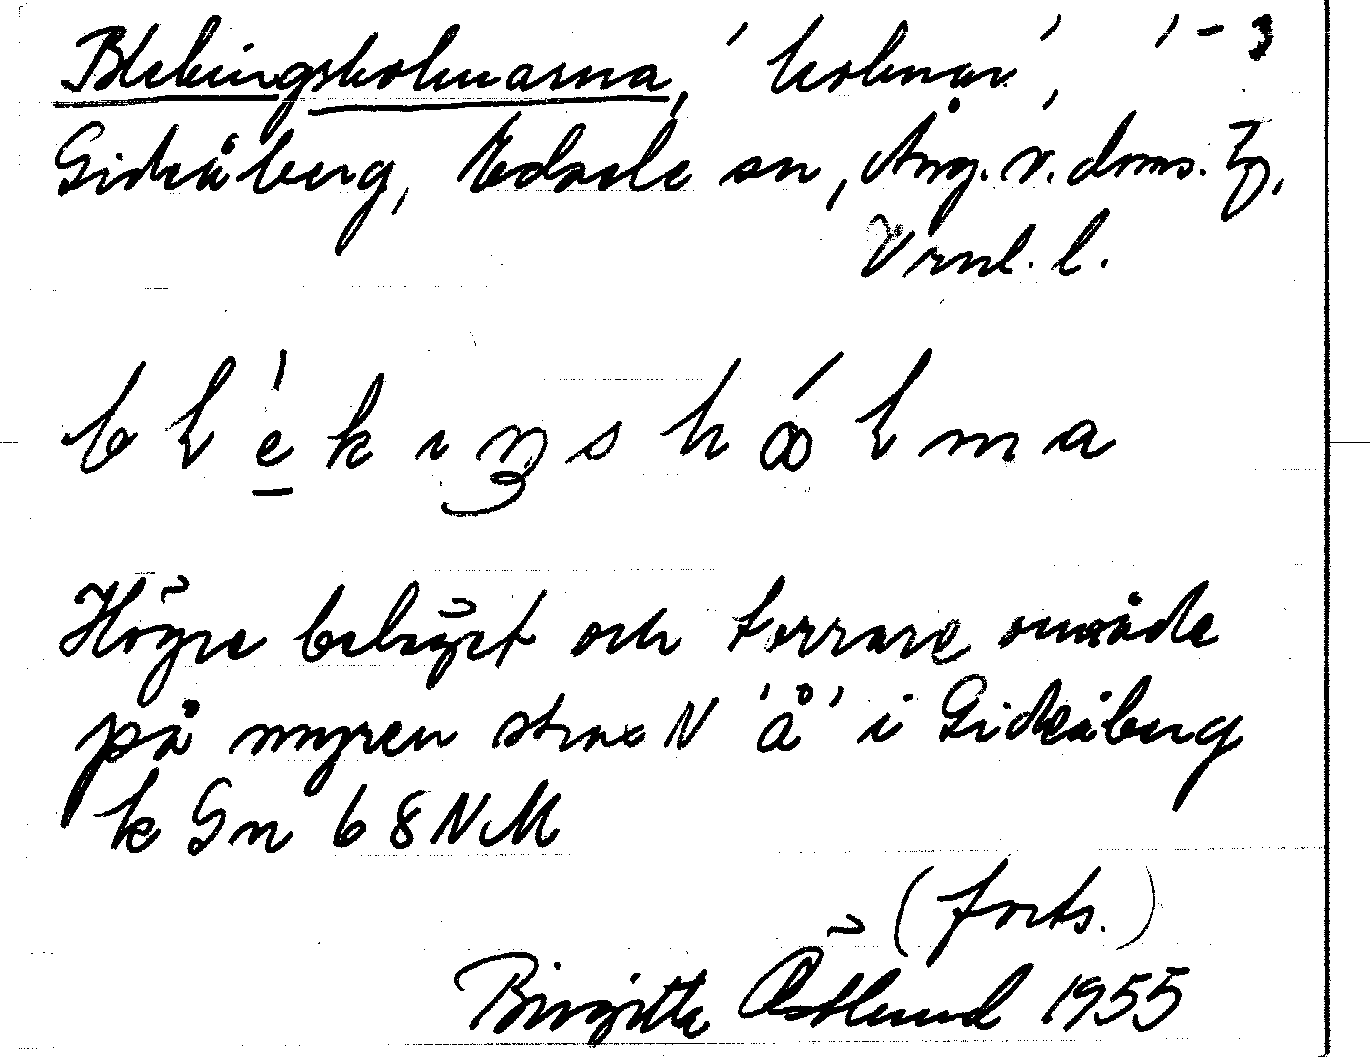 Blekingsholmarna, 'holmar', '-3
Gideåberg, Edsele sn, Ång. v. doms. tg,
Vrnl. l.
b l è k ɩ ŋ s h ó l m a
Högre beläget och torrare område
på myren strax N 'å' i Gideåberg
k Gn 68 NM
(forts.)
Birgitta Östlund 1955